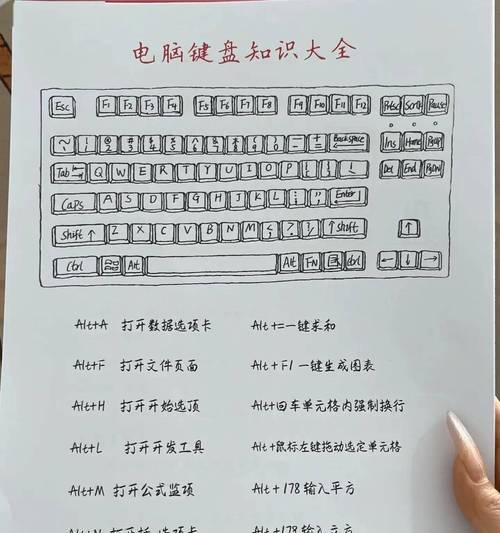 电脑键盘知识大全
Esc F1 F2 F3 F4 F5 F6 F7 F8 F9 F10 F11 F12 Prtsc Scroll Pause
~ ! @ 2 # 3 $ 4 % 5 ^ 6 & 7 * 8 ( 9 ) 0 — - + = Backspace Ins Home PgUp
Tab Q W E R T Y U I O P { [ } ] Del End PgDn
Caps A S D F G H J K L : ; " ' Enter
Shift ↑ Z X C V B N M < > ? / ↑ Shift ↑
Ctrl Alt Alt FN Ctrl ← ↓ →
Alt+A 打开数据选项卡 Alt+=一键求和
Alt+F 打开文件页面 Alt+F1一键生成图表
Alt+H 打开开始选顶 Alt+回车单元格内强制换行
Alt+L 打开开发工具 Alt+鼠标左键拖动选定单元格
Alt+M 打开公式监项 Alt+178输入平方
Alt+N 选项卡 Alt+178输入立方